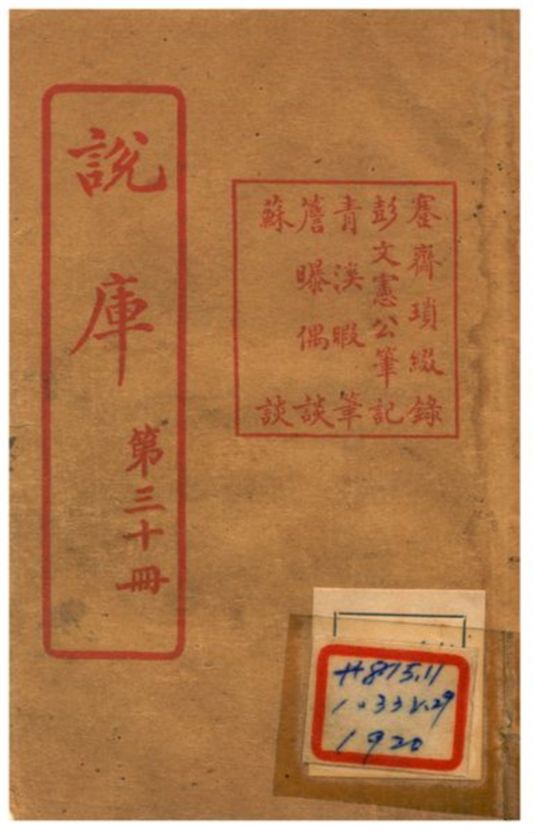 蹇齊瑣綴錄
彭文憲公筆記
青溪暇筆
簷曝偶談
蘇談
說庫
第三十冊
H875.11
1033 V.29
1920